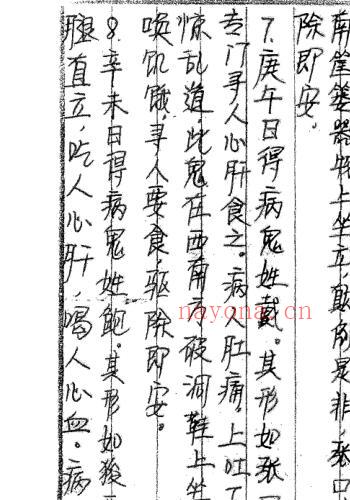 南筐篓器物上坐立,鼓角是非,张口
除即安。
7.庚午日得病鬼姓戴。其形如张
专门寻人心肝食之。病人肚痛,上吐
惊乱道,此鬼在西南方破洞鞋上坐
唤饥饿,寻人要食,驱除即安。
8.辛未日得病鬼姓鲍。其形如猴
腿直立,吃人心肝,喝人心血。病
nayona.cn